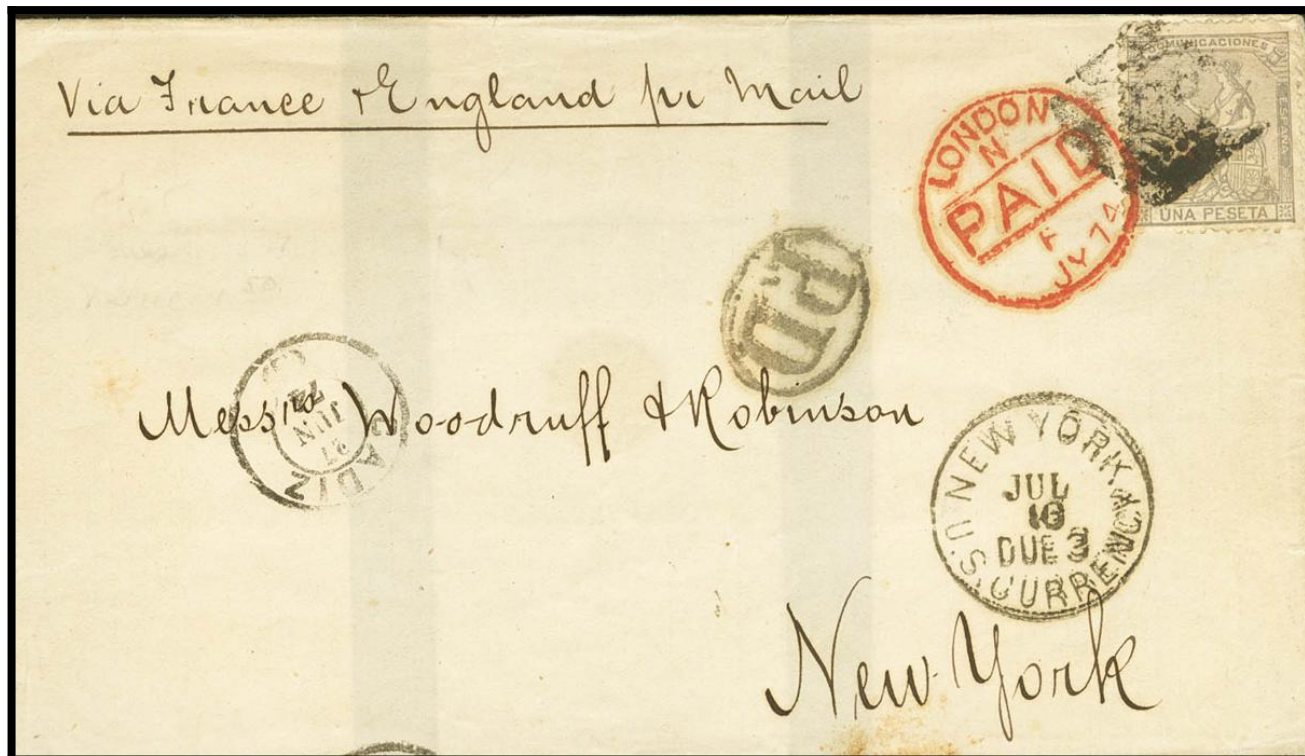 Via France & England pr Mail
COMUNICACIONES
ESPAÑA
UNA PESETA
LONDON
N
PAID
F
JY 74
PD
CADIZ
27
JUN
74
Messrs Woodruff & Robinson
NEW YORK.
JUL
10
DUE 3
U.S. CURRENCY
New York